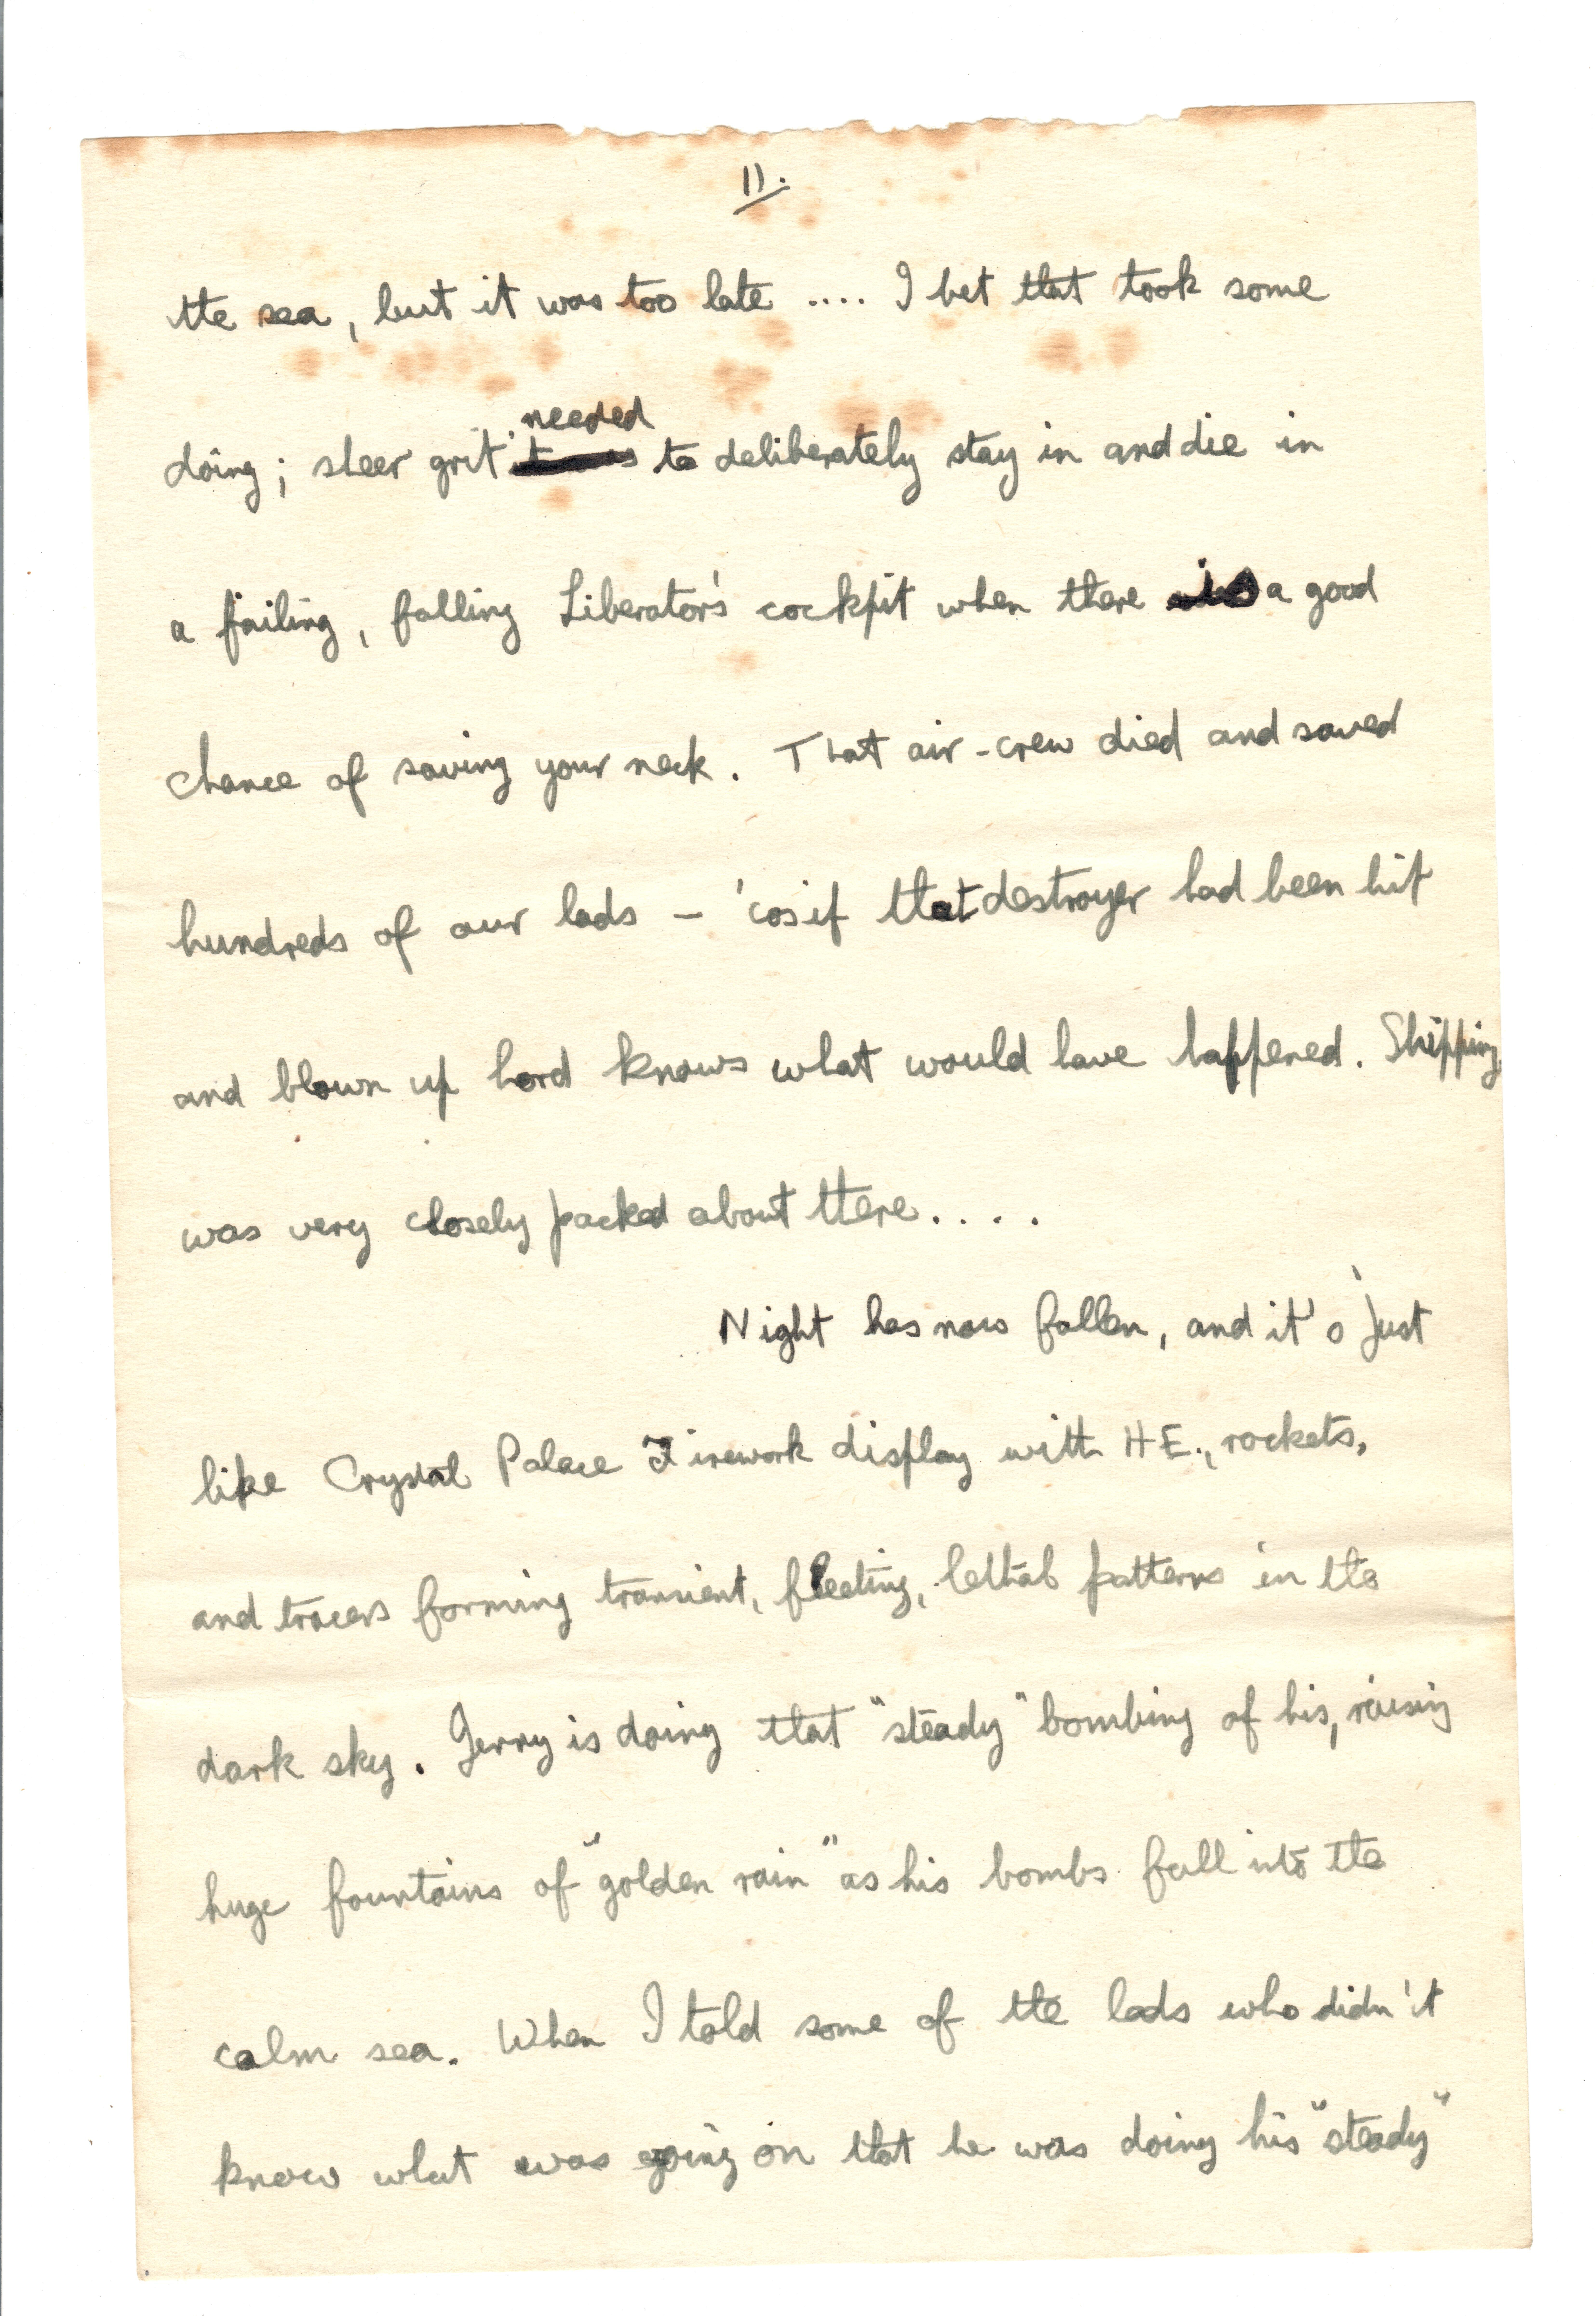 11.
the sea, but it was too late .... I bet that took some
needed
doing; sheer grit to deliberately stay in and die in
a failing, falling Liberator's cockpit when there is a good
chance of saving your neck. That air-crew died and saved
hundreds of our lads - 'cos if that destroyer had been hit
and blown up Lord knows what would have happened. Shipping
was very closely packed about there....
Night has now fallen, and it's just
like Crystal Palace Firework display with H.E., rockets,
and tracers forming transient, fleeting, lethal patterns in the
dark sky. Jerry is doing that "steady" bombing of his, raising
huge fountains of "golden rain" as his bombs fall into the
calm sea. When I told some of the lads who didn't
know what was going on that he was doing his "steady"